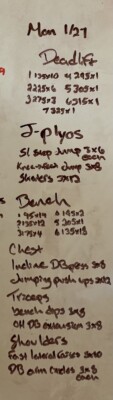 Mon 1/27
Deadlift
1 135x10 4 245x1
2 225x6 5 305x1
3 275x3 6 315x1
7 325x1
J-plyos
Sl step jump 3x6
each
Knee jump 3x8
Skaters 3x12
Bench
1 95x14 4 145x3
2 135x12 5 205x1
3 175x4 6 135x8
Chest
Incline DB press 3x8
Jumping push ups 2x12
Triceps
bench dips 3x8
OH DB extension 3x8
Shoulders
Fast lateral raises 3x10
DB arm circles 3x8
each